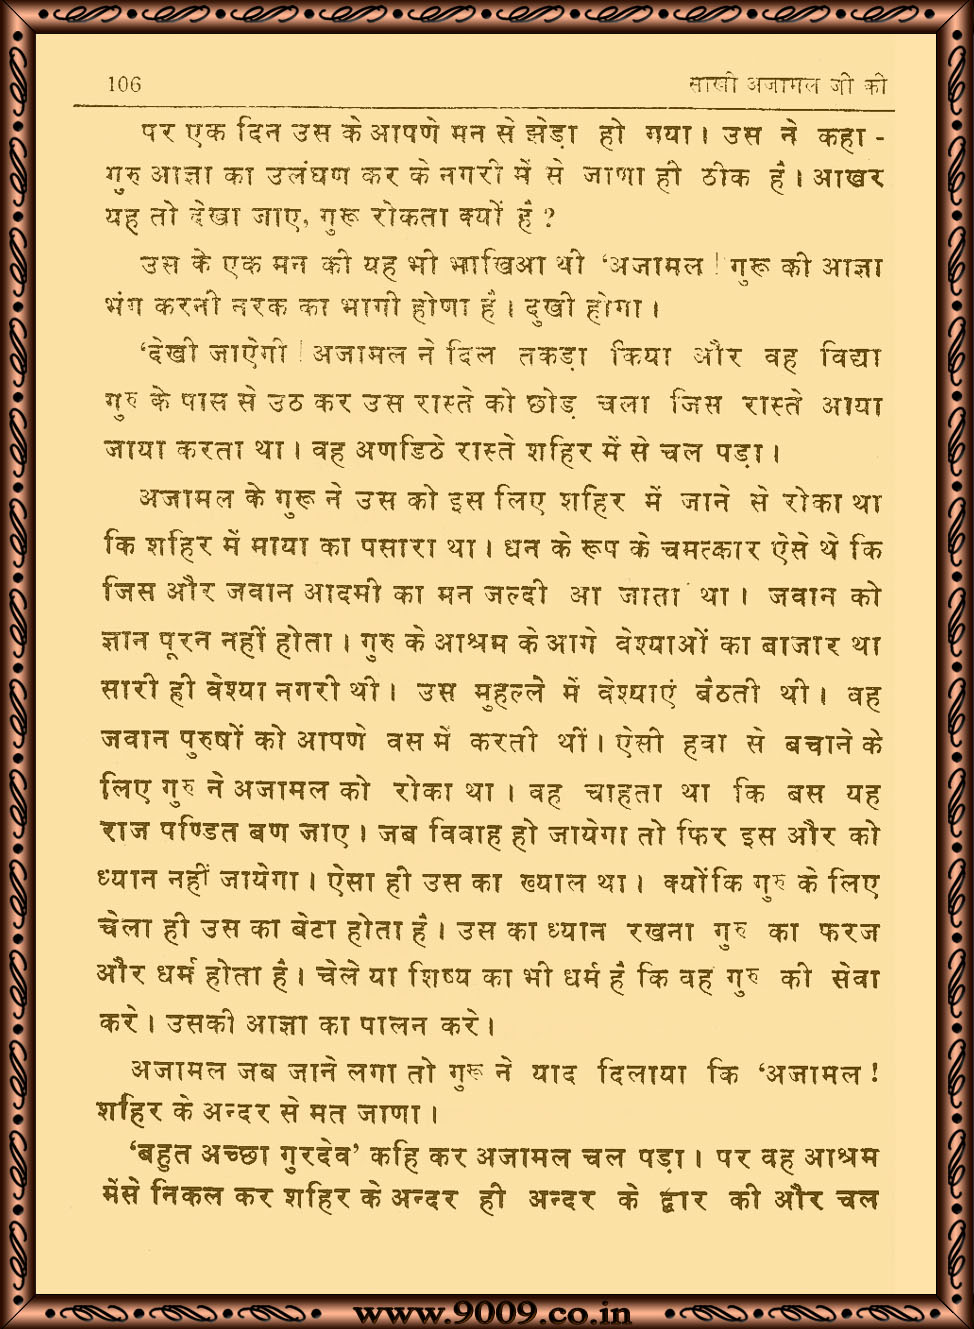 106 साखी अजामल जी की
पर एक दिन उस के आपणे मन से झेड़ा हो गया। उस ने कहा -
गुरु आज्ञा का उलंघण कर के नगरी में से जाणा ही ठीक है। आखर
यह तो देखा जाए, गुरू रोकता क्यों है ?
उस के एक मन की यह भी भाखिआ थी ‘अजामल ! गुरू की आज्ञा
भंग करनी नरक का भागी होणा है। दुखी होगा।
‘देखी जाऐगी ! अजामल ने दिल तकड़ा किया और वह विद्या
गुरु के पास से उठ कर उस रास्ते को छोड़ चला जिस रास्ते आया
जाया करता था। वह अणडिठे रास्ते शहिर में से चल पड़ा।
अजामल के गुरू ने उस को इस लिए शहिर में जाने से रोका था
कि शहिर में माया का पसारा था। धन के रूप के चमत्कार ऐसे थे कि
जिस और जवान आदमी का मन जल्दी आ जाता था। जवान को
ज्ञान पूरन नहीं होता। गुरु के आश्रम के आगे वेश्याओं का बाजार था
सारी ही वेश्या नगरी थी। उस मुहल्ले में वेश्याएं बैठती थी। वह
जवान पुरुषों को आपणे वस में करती थीं। ऐसी हवा से बचाने के
लिए गुरु ने अजामल को रोका था। वह चाहता था कि बस यह
राज पण्डित बण जाए। जब विवाह हो जायेगा तो फिर इस और को
ध्यान नहीं जायेगा। ऐसा ही उस का ख्याल था। क्योंकि गुरु के लिए
चेला ही उस का बेटा होता है। उस का ध्यान रखना गुरु का फरज
और धर्म होता है। चेले या शिष्य का भी धर्म है कि वह गुरु की सेवा
करे। उसकी आज्ञा का पालन करे।
अजामल जब जाने लगा तो गुरू ने याद दिलाया कि ‘अजामल !
शहिर के अन्दर से मत जाणा।
‘बहुत अच्छा गुरदेव’ कहि कर अजामल चल पड़ा। पर वह आश्रम
मेंसे निकल कर शहिर के अन्दर ही अन्दर के द्वार की और चल
www.9009.co.in